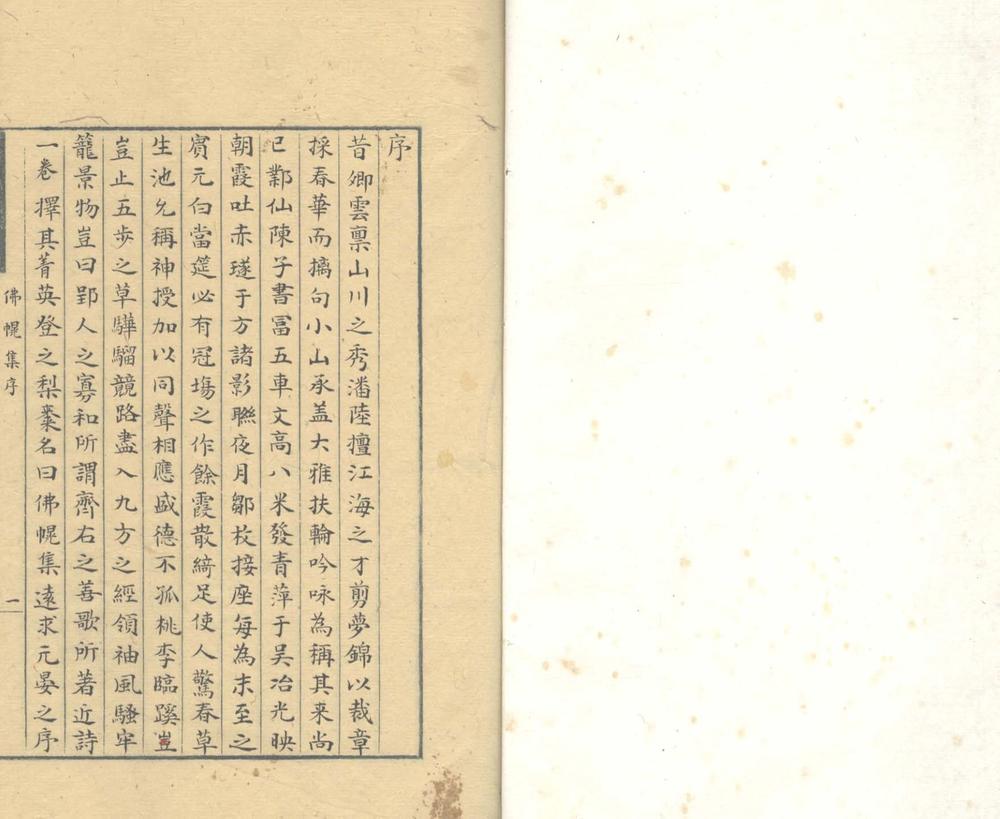 序
昔卿雲禀山川之秀潘陸擅江海之才剪夢錦以裁章
採春華而摛句小山承盖大雅扶輪吟咏為稱其来尚
已鄴仙陳子書冨五車文高八米發青萍于吴冶光映
朝霞吐赤璲于方諸影聮夜月鄒枚接座每為末至之
賔元白當筵必有冠塲之作餘霞散綺足使人驚春草
生池允稱神授加以同聲相應盛德不孤桃李臨蹊豈
豈止五步之草驊騮競路盡入九方之經領袖風騷牢
籠景物豈曰郢人之寡和所謂齊右之善歌所著近詩
一卷擇其菁英登之梨棗名曰佛幌集遠求元晏之序
佛幌集序
一